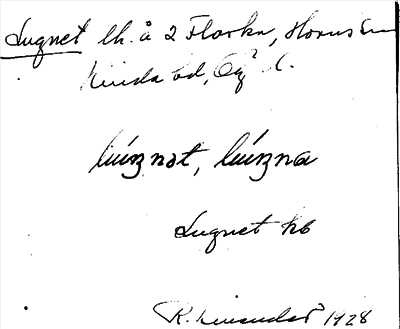 Lugnet lh. å 2 Florka, Horns sn
Kinda hd, Ög.
lúgnət, lúgna
Lugnet kb
R. Linander 1928